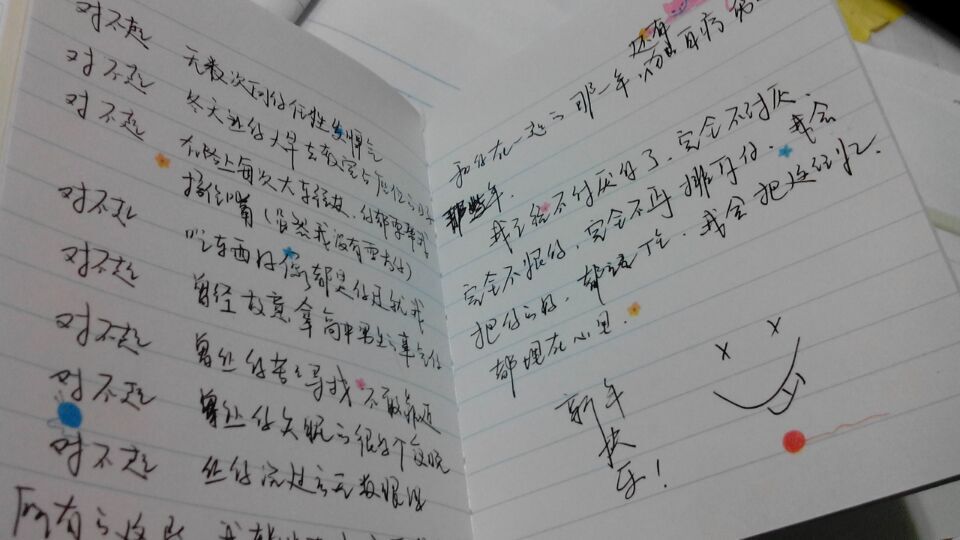 对不起 无数次向你任性发脾气
对不起 冬天让你大早去教室占座位
对不起 在路上每次大车经过，你都要帮我
捂住嘴（虽然我没有要求你）
对不起 吃东西好像都是你迁就我
对不起 曾经故意拿高中男生事气你
对不起 曾让你苦苦寻找不敢靠近
对不起 曾让你失眠的很多个夜晚
对不起 让你流过的无数眼泪
所有的
和你在一起的那一年，还有
那些年.
我已经不讨厌你了，完全不讨厌.
完全不恨你，完全不再排斥你.我会
把你的好，都记住.我会把这经忆.
都埋在心里.
新年
快
乐！